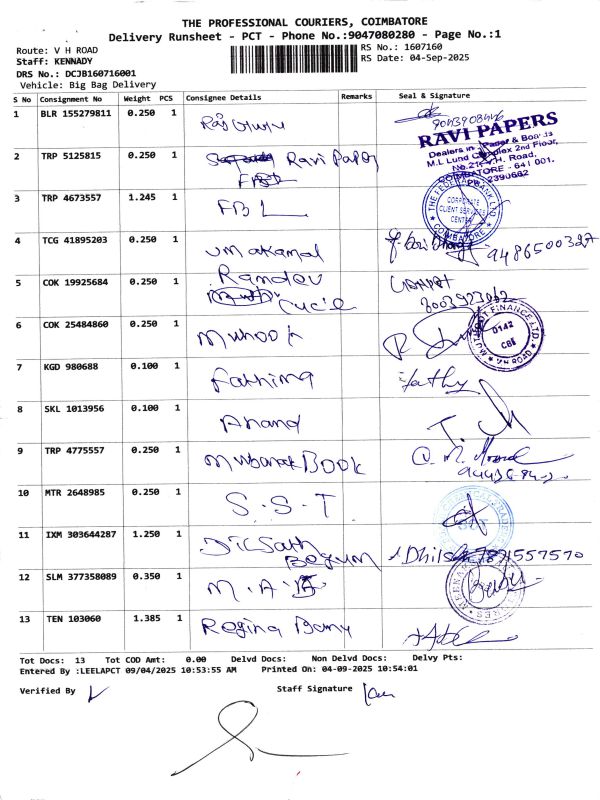 THE PROFESSIONAL COURIERS, COIMBATORE
Delivery Runsheet - PCT - Phone No.:9047080280 - Page No.:1
Route: V H ROAD
RS No.: 1607160
Staff: KENNADY
RS Date: 04-Sep-2025
DRS No.: DCJB160716001
Vehicle: Big Bag Delivery
S No Consignment No Weight PCS Consignee Details Remarks Seal & Signature
1 BLR 155279811 0.250 1
RAVI PAPERS
Dealers in Paper & Boards
M.L Lund Complex 2nd Floor,
V.H. Road,
COIMBATORE - 641 001.
2390662
2 TRP 5125815 0.250 1 Ravi Paper
3 TRP 4673557 1.245 1 FBL
THE FEDERAL BANK LTD.
CORPORATE
CLIENT SERVICES
CENTER
COIMBATORE
4 TCG 41895203 0.250 1 umakamal 9486500327
5 COK 19925684 0.250 1 Ramdev
6 COK 25484860 0.250 1
FINANCE LTD.
0142
CBE
V H ROAD
7 KGD 980688 0.100 1 Fathima Fathy
8 SKL 1013956 0.100 1 Anand
9 TRP 4775557 0.250 1 Mubarak Book
10 MTR 2648985 0.250 1 S.S.T
11 IXM 303644287 1.250 1 Dilsath
Begum Dhilsath 7871557570
12 SLM 377358089 0.350 1
13 TEN 103060 1.385 1 Regina Banu
Tot Docs: 13 Tot COD Amt: 0.00 Delvd Docs: Non Delvd Docs: Delvy Pts:
Entered By :LEELAPCT 09/04/2025 10:53:55 AM Printed On: 04-09-2025 10:54:01
Verified By
Staff Signature